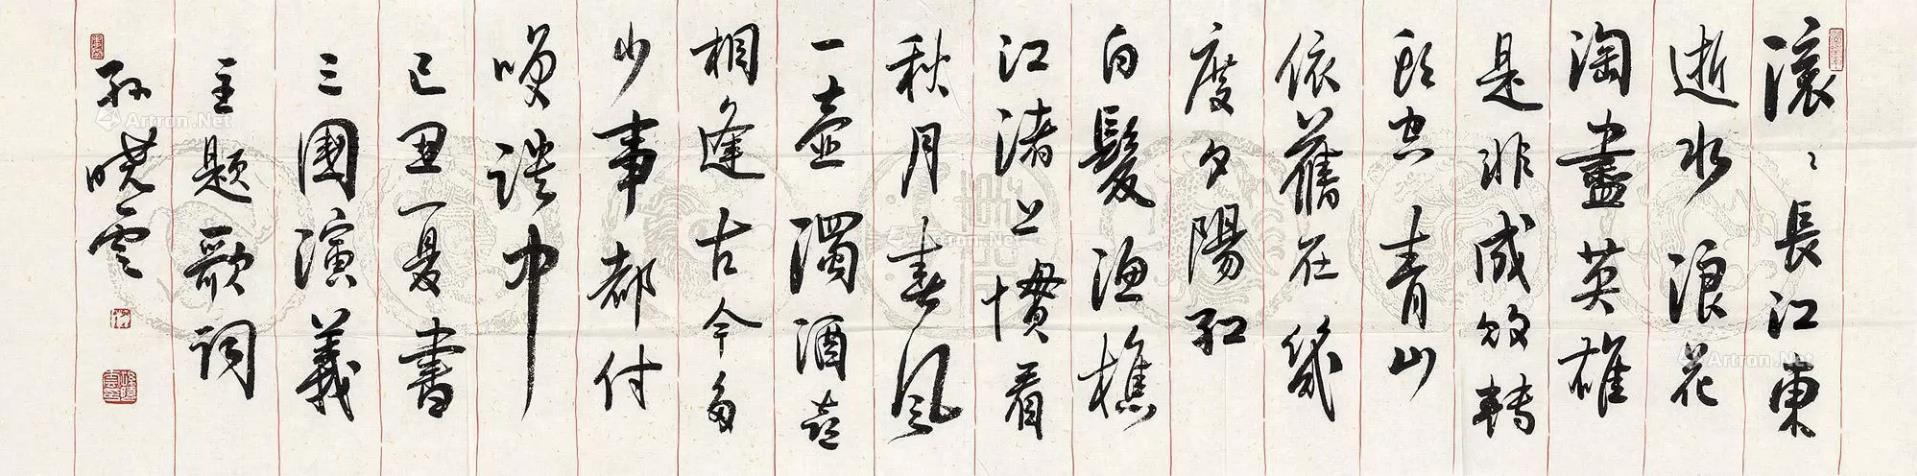 滚〻長江東
逝水浪花
淘盡英雄
是非成敗轉
頭空青山
依舊在幾
度夕陽紅
白髮漁樵
江渚上慣看
秋月春風
一壺濁酒喜
相逢古今多
少事都付
笑談中
己丑夏書
三國演義
主題歌詞
孫曉雲
Artron.Net
Artron.Net
Artron.Net
Artron.Net